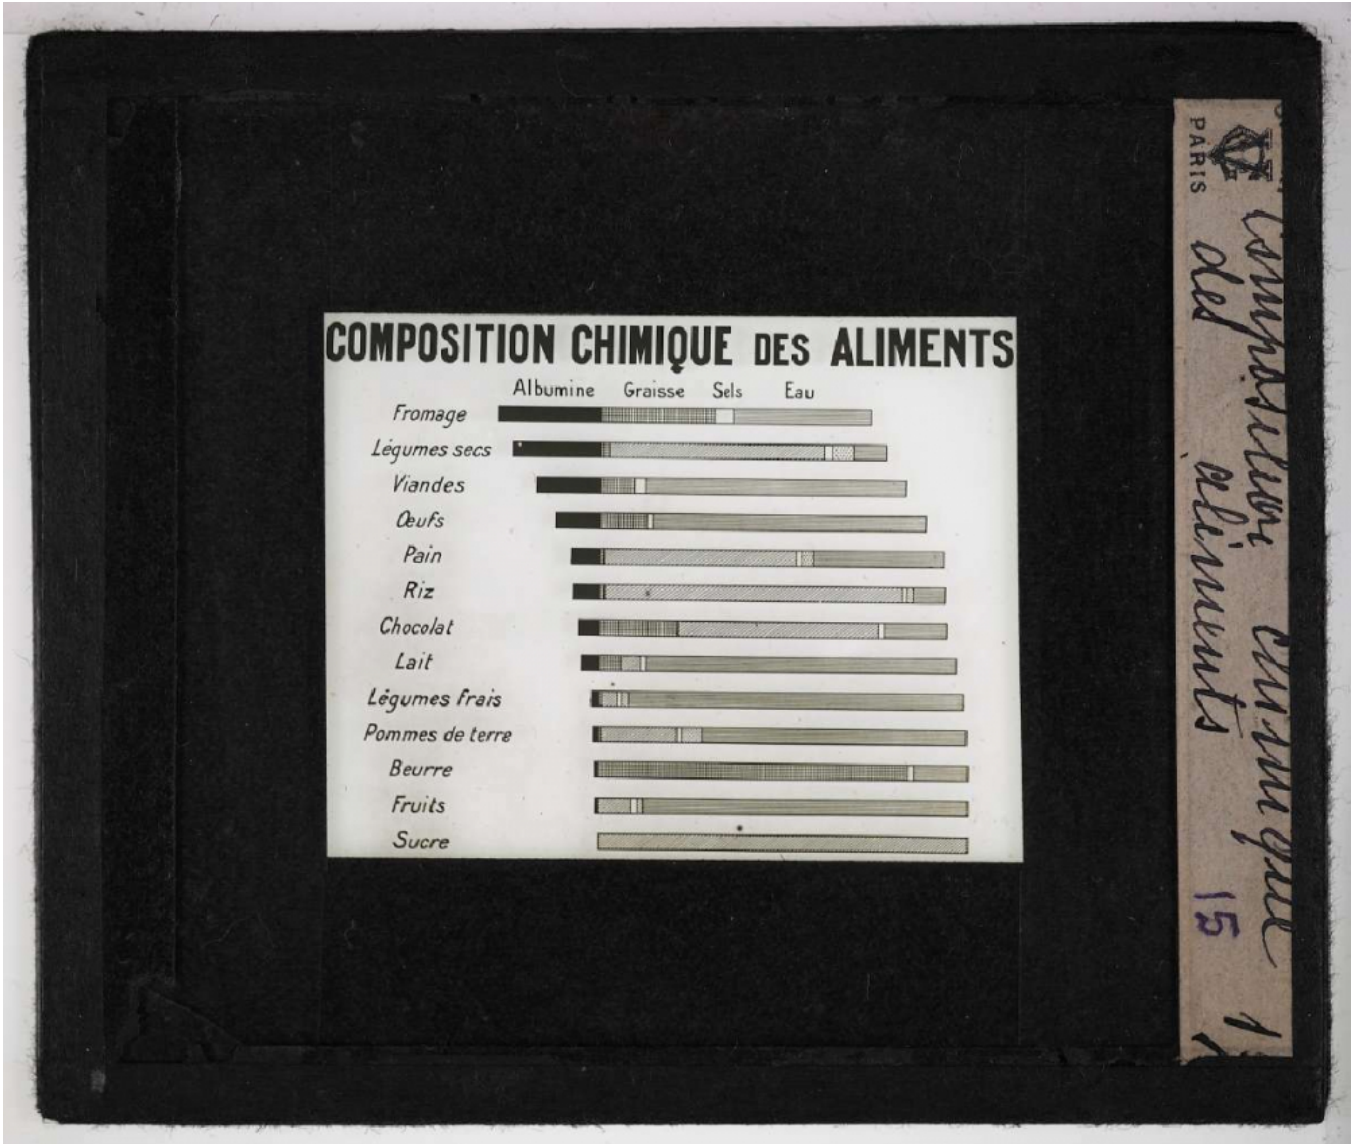 COMPOSITION CHIMIQUE DES ALIMENTS
Albumine Graisse Sels Eau
Fromage
Légumes secs
Viandes
Œufs
Pain
Riz
Chocolat
Lait
Légumes frais
Pommes de terre
Beurre
Fruits
Sucre
PARIS
Composition chimique
des aliments
15